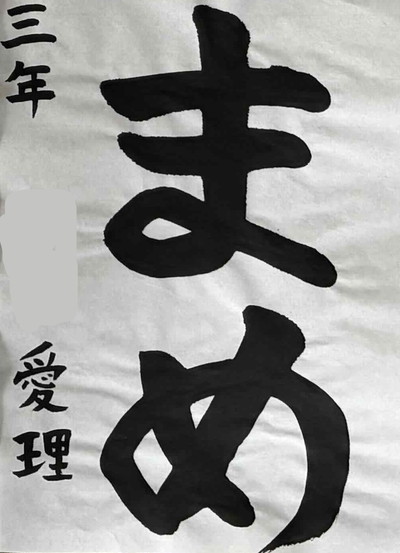 まめ
三年
愛理